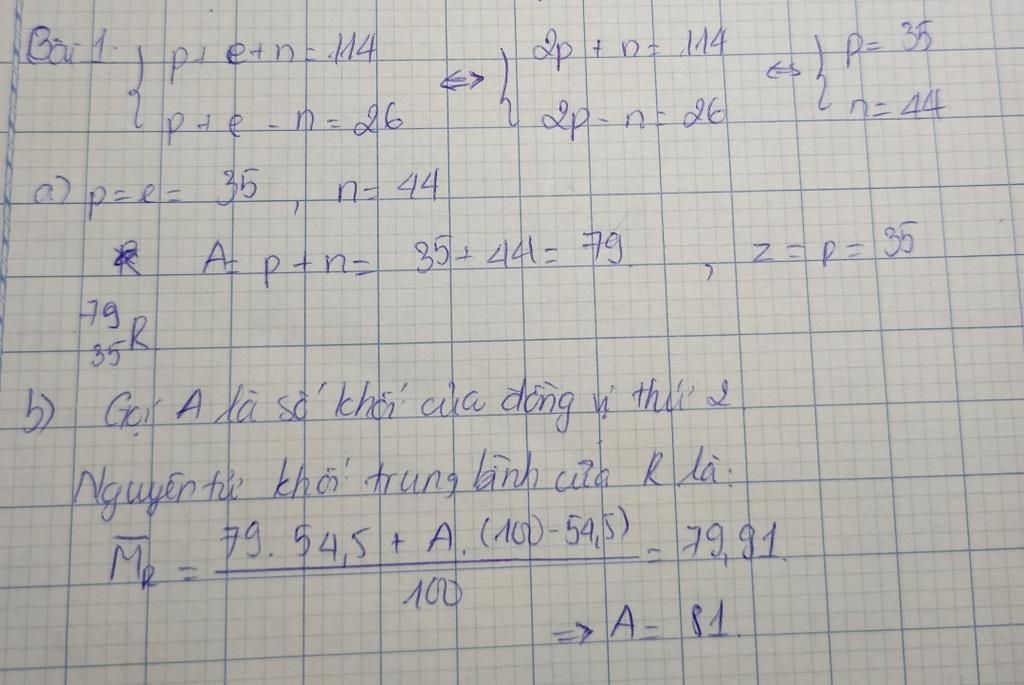 Bài 1. { p + e + n = 114 ⇔ { 2p + n = 114 ⇔ { p = 35
p + e - n = 26 2p - n = 26 n = 44
a) p = e = 35, n = 44
A = p + n = 35 + 44 = 79, z = p = 35
79
35 R
b) Gọi A là số khối của đồng vị thứ 2
Nguyên tử khối trung bình của R là:
M̅R = 79. 54,5 + A. (100 - 54,5) = 79,91.
100
⇒ A = 81.